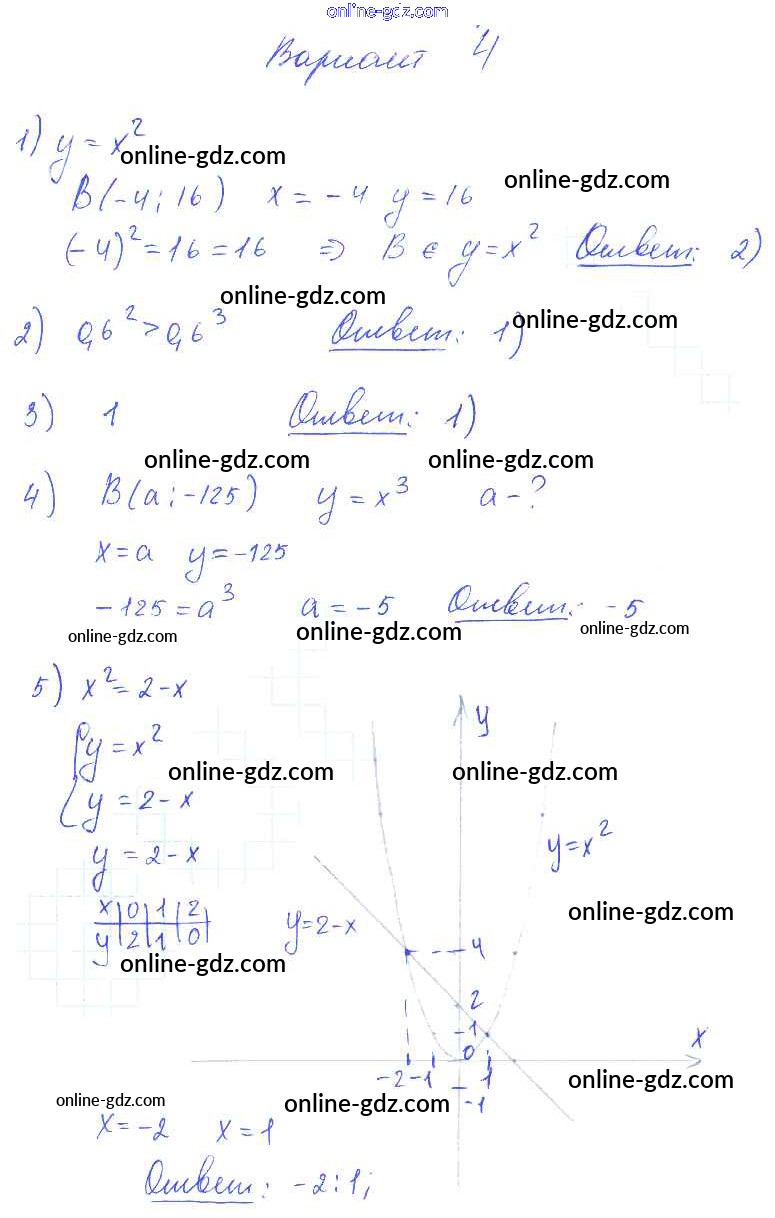 online-gdz.com
Вариант 4
1) y = x²
online-gdz.com
online-gdz.com
B(-4; 16) x = -4 y = 16
(-4)² = 16 = 16 ⇒ B ∈ y = x² Ответ: 2)
online-gdz.com
online-gdz.com
2) 0,6² > 0,6³ Ответ: 1)
3) 1 Ответ: 1)
online-gdz.com
online-gdz.com
4) B(a; -125) y = x³ a - ?
x = a y = -125
-125 = a³ a = -5 Ответ: -5
online-gdz.com
online-gdz.com
online-gdz.com
5) x² = 2 - x
{ y = x²
online-gdz.com
online-gdz.com
y = 2 - x
y = 2 - x
x | 0 | 1 | 2
y | 2 | 1 | 0
online-gdz.com
y = 2 - x
y
y = x²
online-gdz.com
4
2
1
0
x
-2 -1 1
-1
online-gdz.com
online-gdz.com
online-gdz.com
x = -2 x = 1
Ответ: -2; 1;